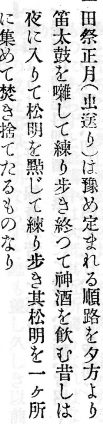 田祭正月(虫送り)は豫め定まれる順路を夕方より
笛太鼓を囃して練り歩き終つて神酒を飮む昔しは
夜に入りて松明を點じて練り歩き其松明を一ヶ所
に集めて焚き捨てたるものなり